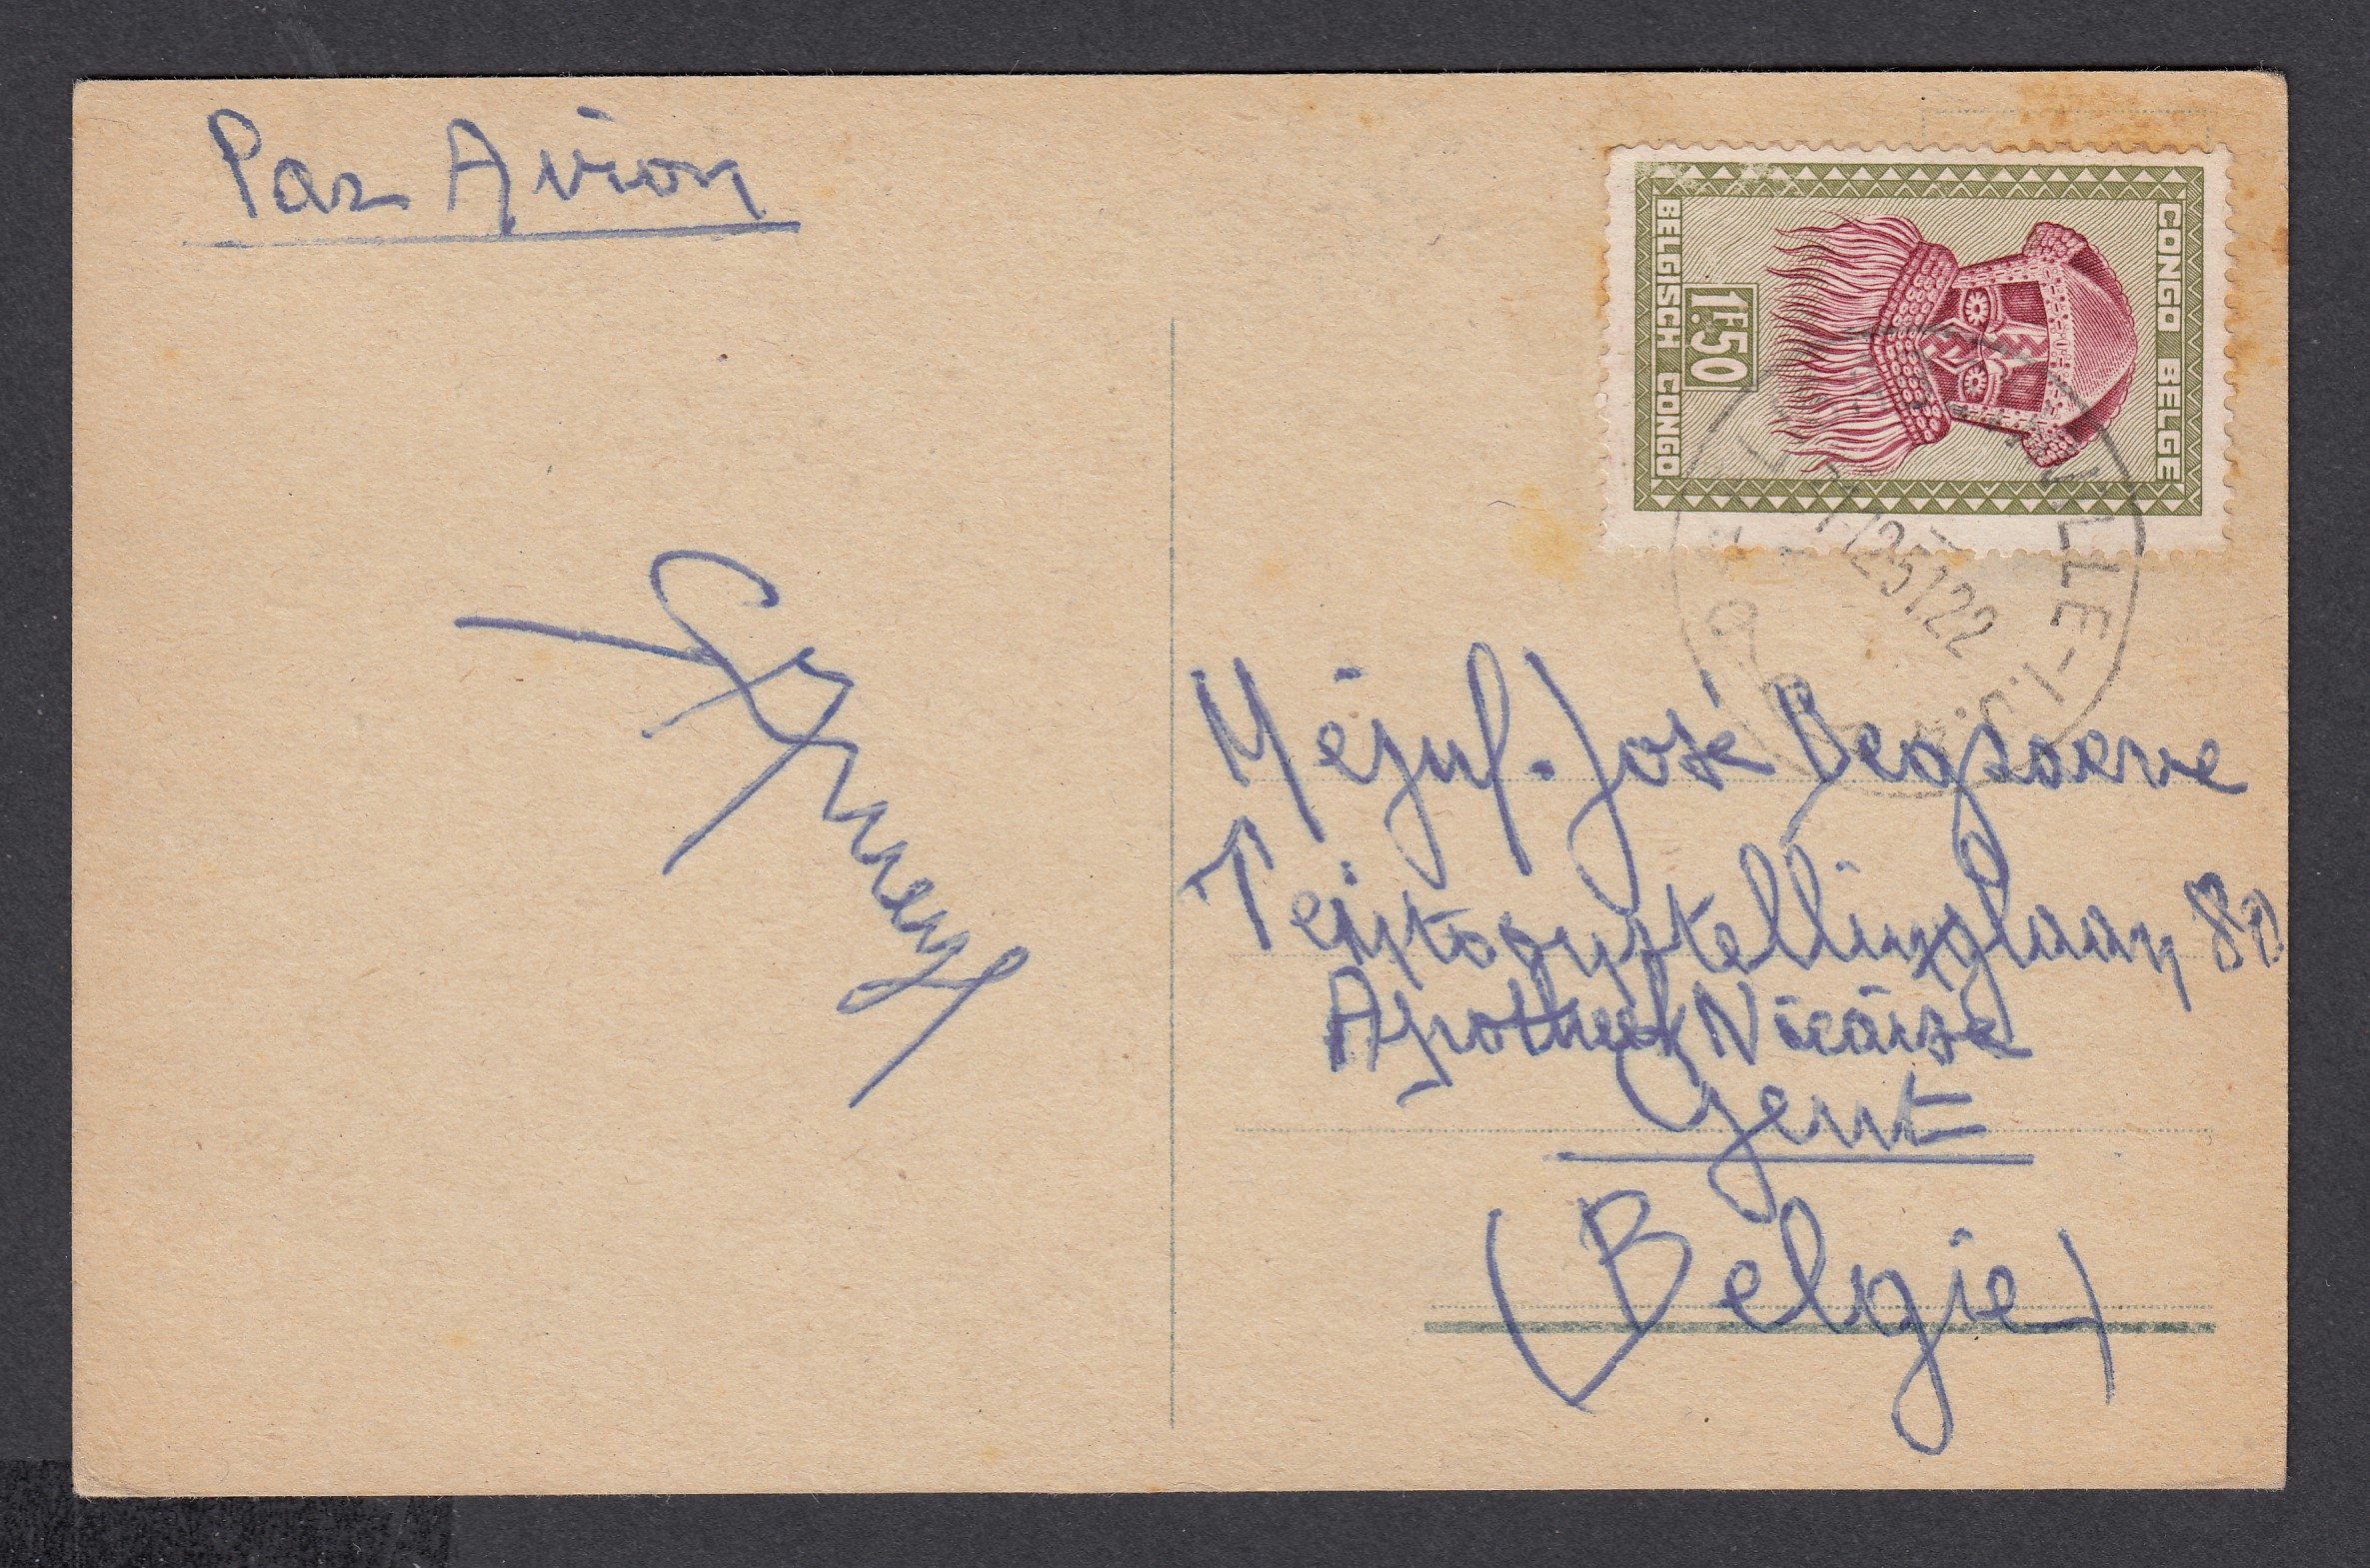 Par Avion
CONGO BELGE
BELGISCH CONGO
1F.50
VILLE-1
251.22
Méjuf. José
Tentoonstellinglaan 80
Apotheek Nicaise
Gent
(Belgie)